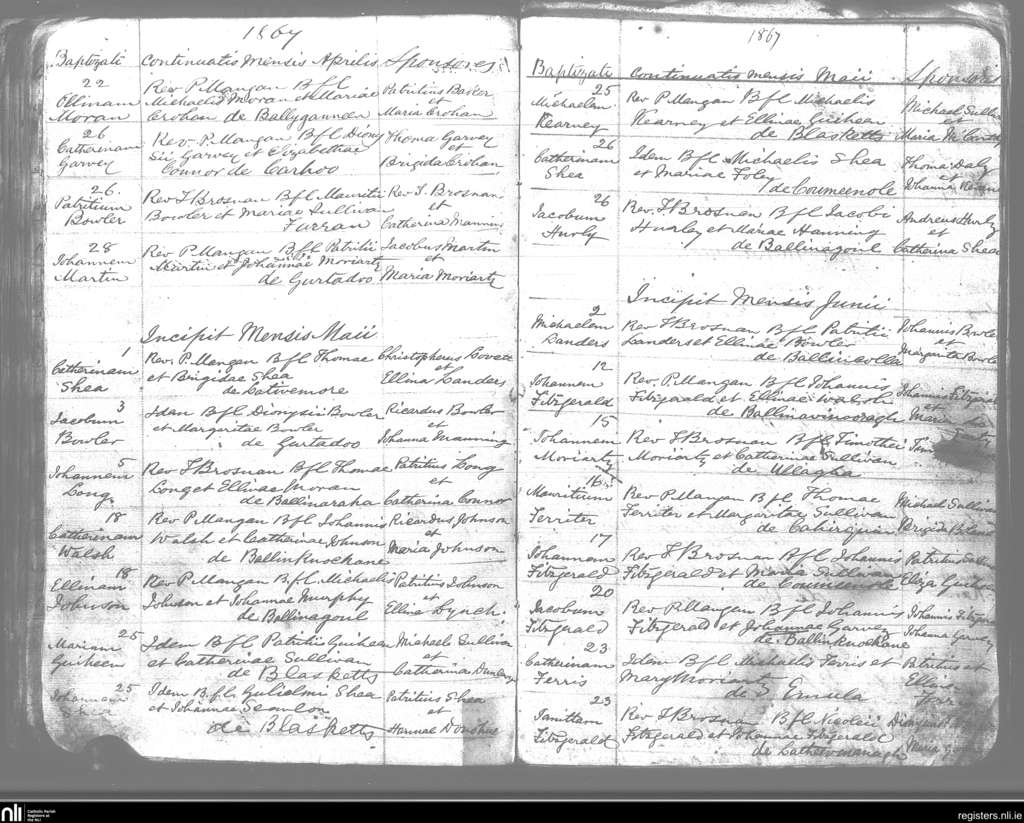 1867
Baptizati Continuatis Mensis Aprilis Sponsores
22 Rev P. Mangan B f l
Ellinam Michaelis Moran et Mariae Patritius Bowler
et
Moran Crohan de Ballyganneen Maria Crohan
26 Rev. P. Mangan B f l Diony Thoma Garvey
Catherinam sii Garvey et Elizabethae et
Garvey Connor de Carhoo Brigida Crohan
26. Rev T Brosnan B f l Mauritii Rev T. Brosnan
Patritium Bowler et Mariae Sullivan et
Bowler Farran Catherina Manning
28 Rev P. Mangan B f l Patritii Jacobus Martin
Johannem Martin et Johannae Moriarty et
Martin de Gurtadoo Maria Moriarty
Incipit Mensis Maii
1 Rev. P. Mangan B f l Thomae Christopherus Lovett
Catherinam et Brigidae Shea et
Shea de Cativemore Ellina Landers
3 Idem B f l Dionysii Bowler Ricardus Bowler
Jacobum et Margaritae Bowler et
Bowler de Gurtadoo Johanna Manning
5 Rev T Brosnan B f l Thomae Patritius Long
Johannem Long et Ellinae Moran et
Long de Ballinaraha Catherina Connor
18 Rev P Mangan B f l Johannis Ricardus Johnson
Catherinam Walsh et Catherinae Johnson et
Walsh de Ballinknockane Maria Johnson
18 Rev P Mangan B f l Michaelis Patritius Johnson
Ellinam Johnson et Johannae Murphy et
Johnson de Ballinagoul Ellina Lynch
25 Idem B f l Patritii Guiheen Michaele Sullivan
Mariam et Catherinae Sullivan et
Guiheen de Blasketts Catherina Dunlevy
25 Idem B f l Gulielmi Shea Patritius Shea
Johannem et Johannae Scanlon et
Shea de Blasketts Hannae Donohue
1867
Baptizati Continuatis mensis Maii Sponsores
25 Rev P Mangan B f l Michaelis Michael
Michaelem Kearney et Ellinae Guiheen et
Kearney de Blasketts Maria
26 Idem B f l Michaelis Shea Thoma Daly
Catherinam et Mariae Foley et
Shea de Coumeenole
26 Rev. T Brosnan B f l Jacobi Andreus Hurly
Jacobum Hurley et Mariae Manning et
Hurly de Ballinagoul Catherina Shea
Incipit Mensis Junii
2 Rev T Brosnan B f l Patritii Johannis
Michaelem Landers et Ellinae Bowler et
Landers de Ballincolla Margarita
12 Rev. P. Mangan B f l Johannis Johannis
Johannem Fitzgerald et Ellinae Walsh et
Fitzgerald de Ballinavinooragh Maria
15 Rev T Brosnan B f l Timothei
Johannem Moriarty et Catherinae Sullivan
Moriarty de Ullagha
16 Rev P Mangan B f l Thomae Michael
Mauritium Ferriter et Margaritae Sullivan
Ferriter de Cahirquin Brigida
17 Rev T Brosnan B f l Johannis Patritius
Johannem Fitzgerald et Maria Sullivan
Fitzgerald de Coumeenole Eliza
20 Rev P Mangan B f l Johannis Johannis
Jacobum Fitzgerald et Johannae Garvey
Fitzgerald de Ballinknockane Johanna Garvey
23 Idem B f l Michaelis Ferris et
Catherinam Mary Moriarty
Ferris de Emula
23 Rev T Brosnan B f l Nicolii
Fitzgerald et Johannae Fitzgerald
Fitzgerald Maria
nli Catholic Parish Registers at the NLI
registers.nli.ie